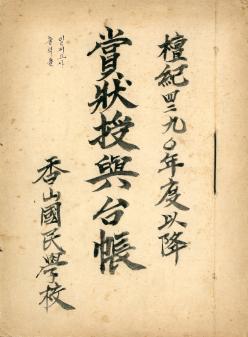 檀紀四二九〇年度以降
賞狀授與台帳
香山國民學校